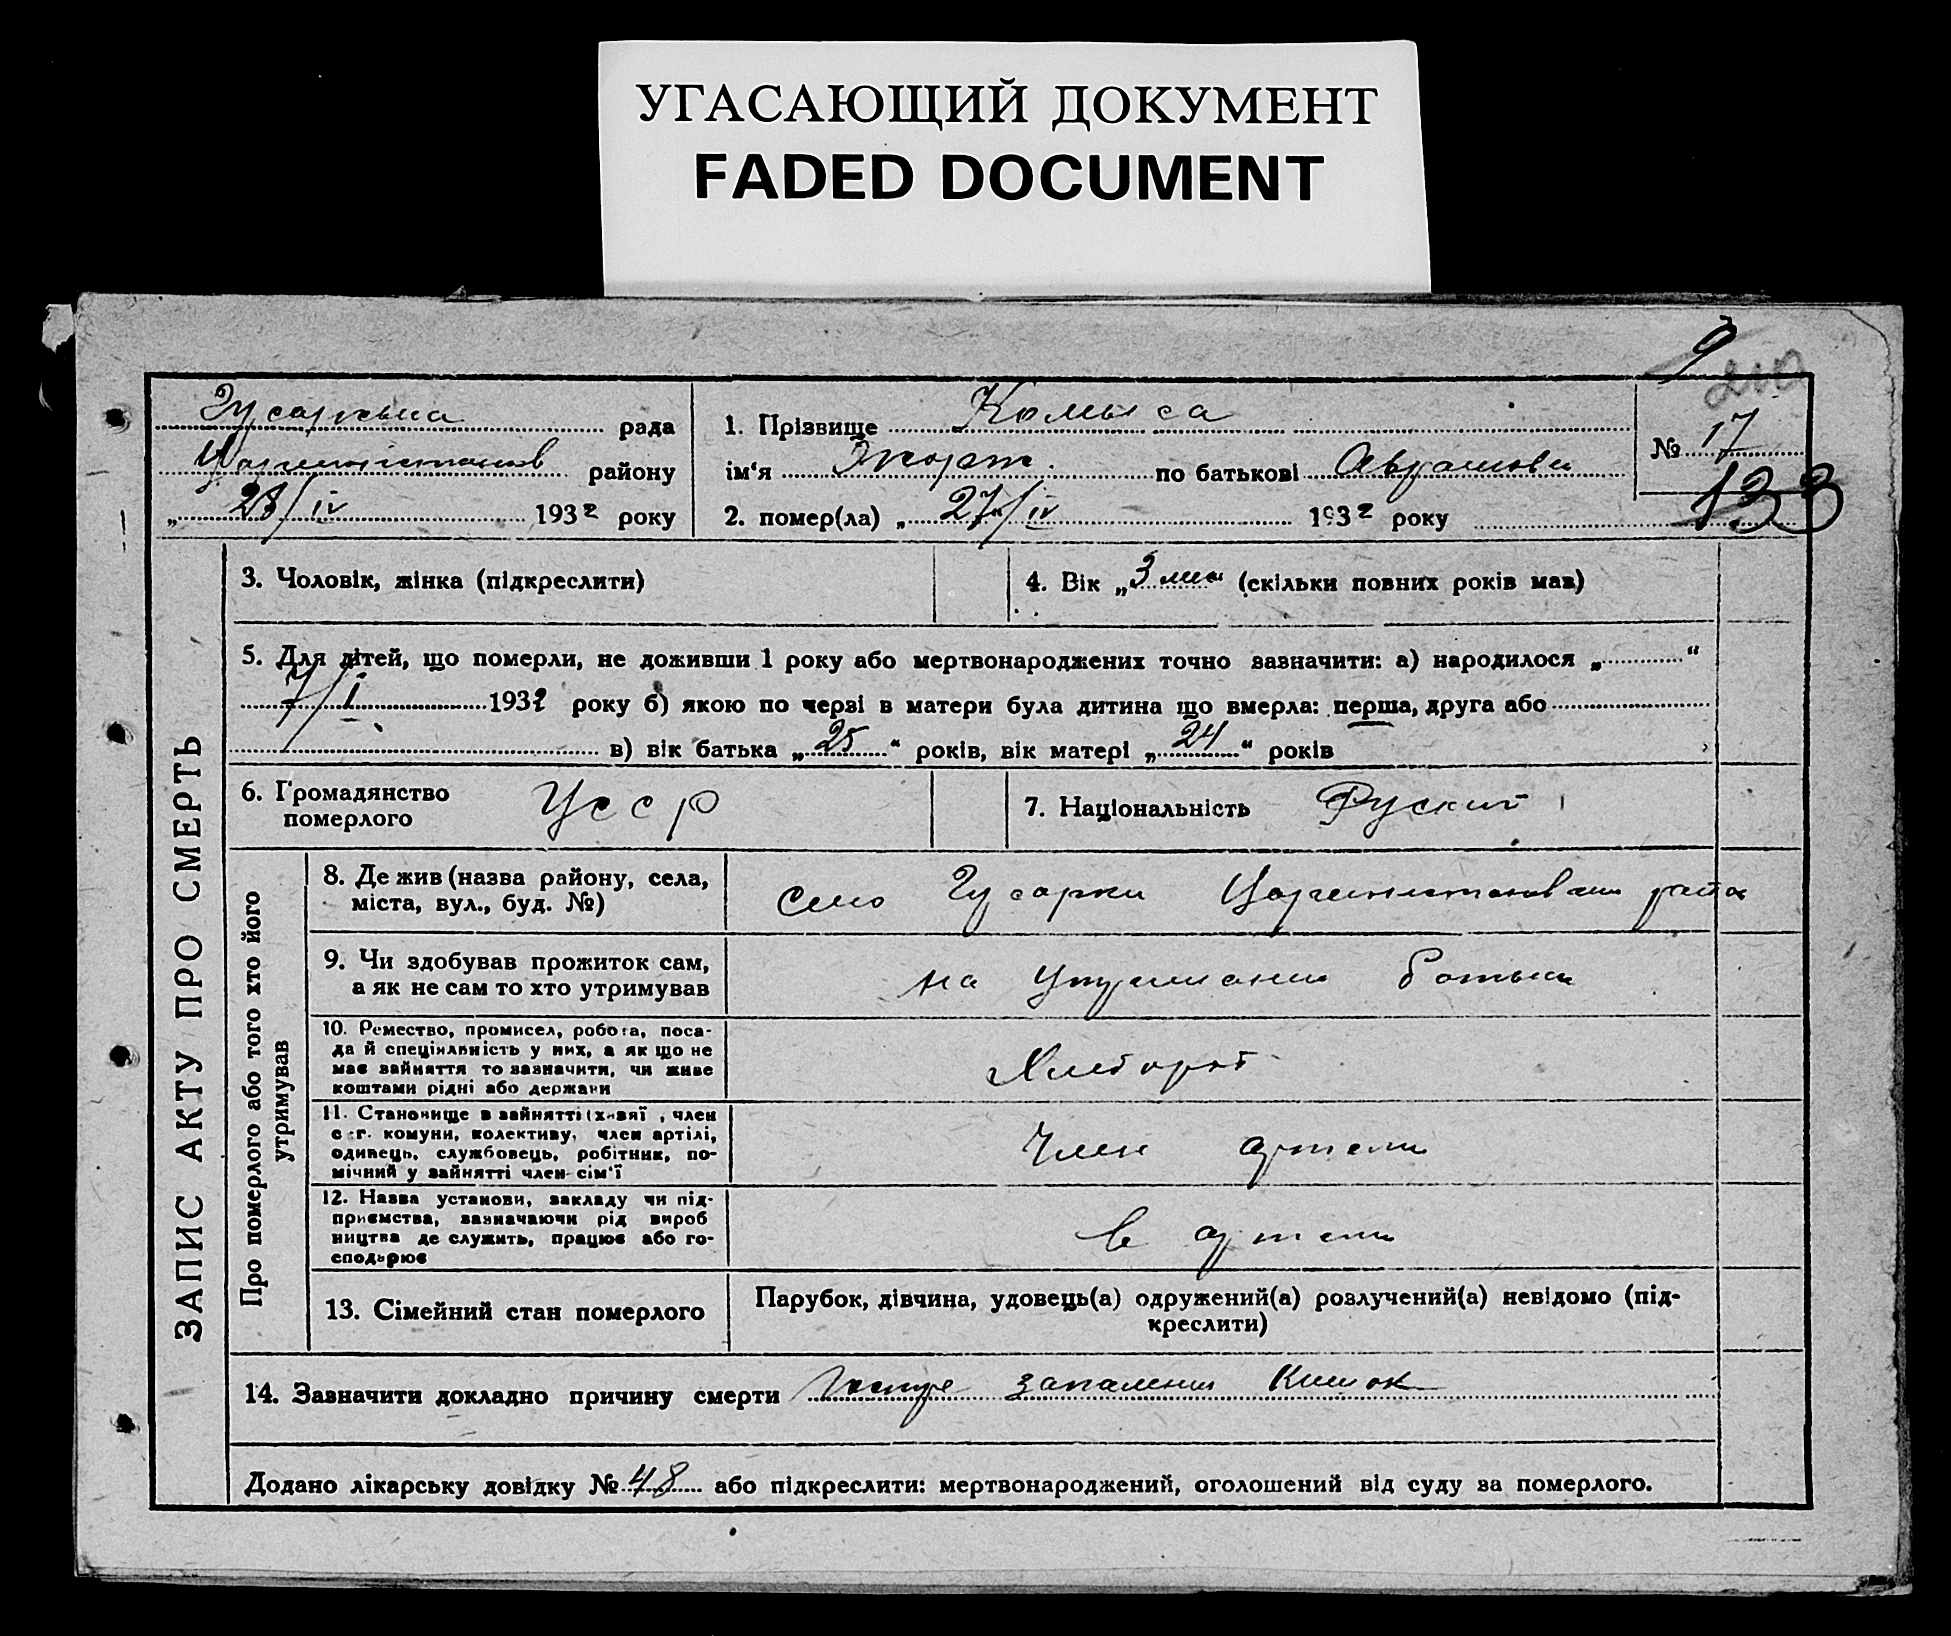 УГАСАЮЩИЙ ДОКУМЕНТ
FADED DOCUMENT
9
Гусарська рада
району
„ 28/IV 1932 року
1. Прізвище Комыса
ім'я по батькові
2. помер(ла) „ 27/IV 1932 року
№ 17
133
ЗАПИС АКТУ ПРО СМЕРТЬ
3. Чоловік, жінка (підкреслити)
4. Вік „ 3 мес (скільки повних років мав)
5. Для дітей, що померли, не доживши 1 року або мертвонароджених точно зазначити: а) народилося „ “
7/I 1932 року б) якою по черзі в матери була дитина що вмерла: перша, друга або
в) вік батька „ 25 “ років, вік матері „ 24 “ років
6. Громадянство
померлого
Усср
7. Національність Руский
Про померлого або того хто його
утримував
8. Де жив (назва району, села,
міста, вул., буд. №)
Село Гусарки района
9. Чи здобував прожиток сам,
а як не сам то хто утримував
на батька
10. Ремество, промисел, робота, поса-
да й спеціяльність у них, а як що не
має зайняття то зазначити, чи живе
коштами рідні або держави
Хлебороб
11. Становище в зайнятті (хазяї, член
с.-г. комуни, колективу, член артілі,
одинець, службовець, робітник, по-
мічний у зайнятті член сім'ї
Член артели
12. Назва установи, закладу чи під-
приємства, зазначаючи рід вироб
ництва де служить, працює або го-
сподарює
в артели
13. Сімейний стан померлого
Парубок, дівчина, удовець(а) одружений(а) розлучений(а) невідомо (під-
креслити)
14. Зазначити докладно причину смерти запаление кишок
Додано лікарську довідку № 48 або підкреслити: мертвонароджений, оголошений від суду за померлого.